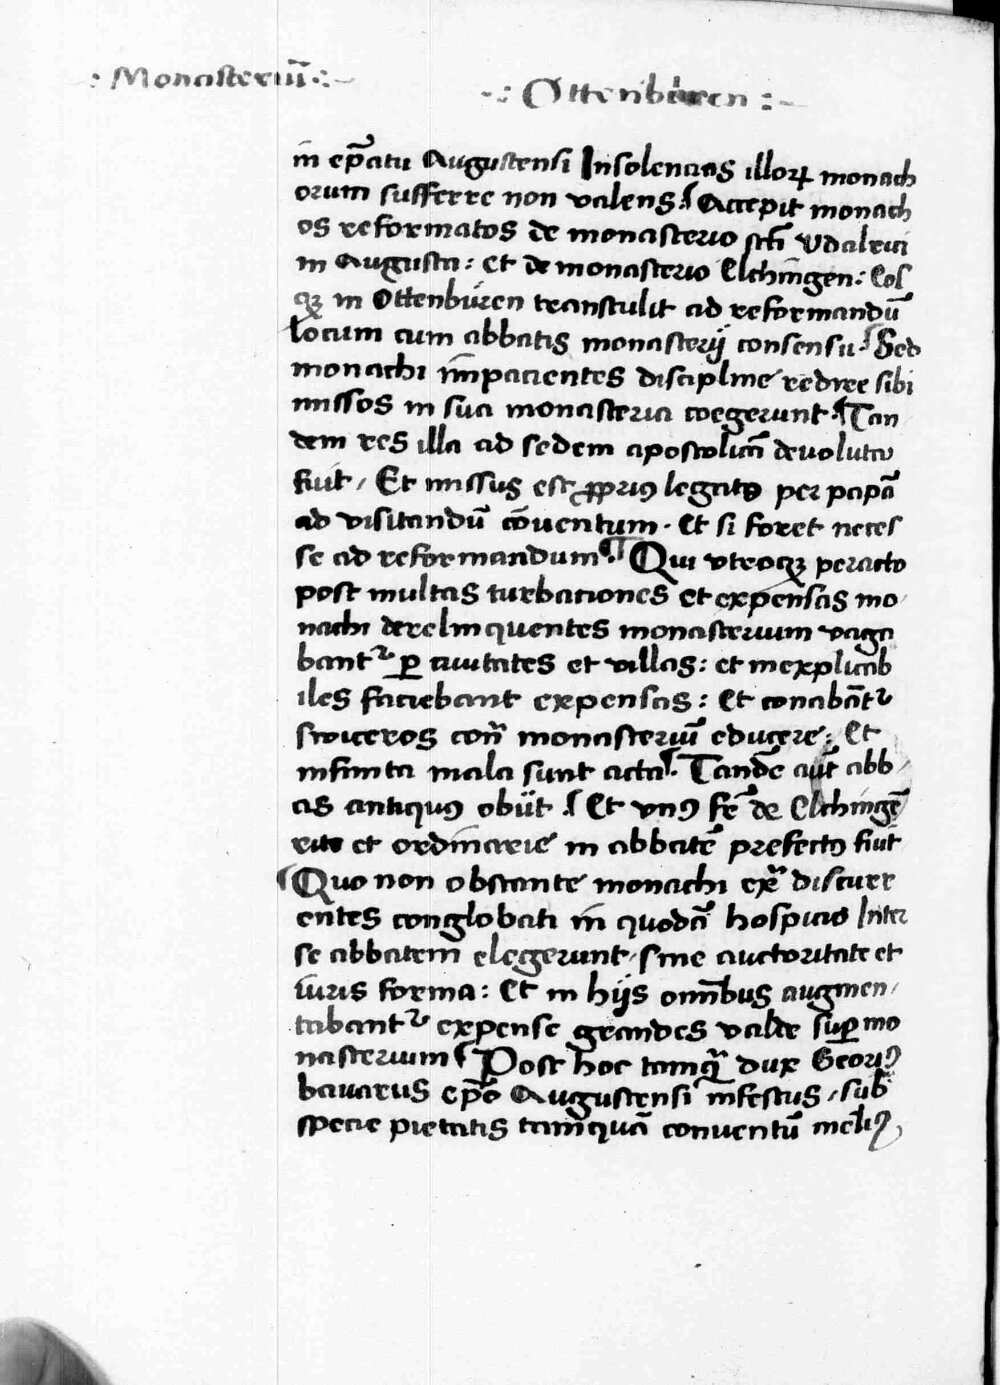 .: Monasteriū :.
.: Ottenburen :.
in ep̄atu Augustensi Insolencias illoꝝ monach
orum sufferre non valens: Accepit monach
os reformatos de monasterio sc̄ti Vdalrici
in Augusta: Et de monasterio Elchingen: Eos
qꝫ in Ottenburen transtulit ad reformandū
locum cum abbatis monasterij consensu: Sed
monachi īmpacientes discipline redire sibi
missos in sua monasteria coegerunt. Tan
dem res illa ad sedem apostolicā deuoluta
fuit / Et missus est ꝓpriꝰ legatꝰ per papā
ad visitandū cōuentum. Et si foret neces
se ad reformandum. Qui vtroqꝫ peracto
post multas turbaciones et expensas mo
nachi derelinquentes monasterium vaga
bantᷣ ꝑ ciuitates et villas: et inexplicab
iles faciebant expensas: Et conabātᷣ
swiceros con̄ monasteriū educere: Et
infinita mala sunt acta. Tandē aut̄ abb
as antiquꝰ obijt. Et vnꝰ fr̄ de Elchingē
rite et ordinarie in abbatē prefectꝰ fuit
Quo non obstante monachi ex̄ discurr
entes conglobati in quodā hospicio Inter
se abbatem elegerunt, sine auctoritate et
iuris forma: Et in hijs omnibus augmen
tabantᷣ expense grandes valde suꝑ mo
nasterium Post hoc tamqᷓ dux Georiꝰ
bauarus ep̄o Augustensi infestus, sub
specie pietatis tamquā conuentū meliꝰ